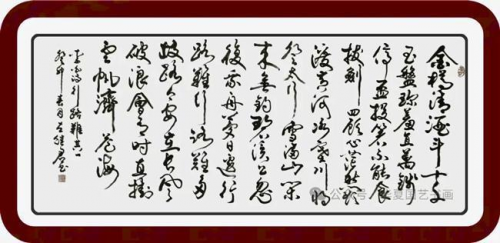 金樽清酒斗十千
玉盘珍羞直萬錢
停杯投箸不能食
拔劍四顾心茫然欲
渡黄河冰塞川将
登太行雪满山闲
来垂钓碧溪上忽
復乘舟梦日边行
路難行路難多
歧路今安在长风
破浪会有时直挂
雲帆濟滄海
李白诗行路難其一
癸卯春月 书
公众号 夏国艺 画